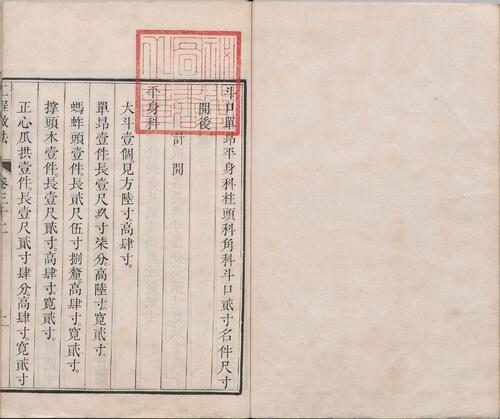 斗口單昂平身科柱頭科角科斗口貳寸名件尺寸
開後
計開
平身科
大斗壹個見方陸寸高肆寸。
單昂壹件長壹尺玖寸柒分。高陸寸寬貳寸。
螞蚱頭壹件。長貳尺伍寸捌釐。高肆寸。寬貳寸。
撑頭木壹件。長壹尺貳寸。高肆寸。寬貳寸。
正心瓜拱壹件。長壹尺貳寸肆分。高肆寸。寬貳寸
工程做法 卷三十二 一